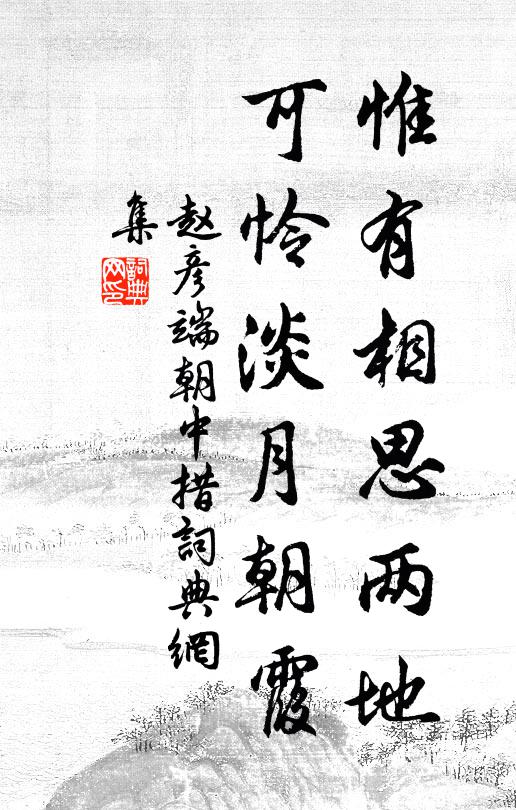 惟有相思两地
可怜淡月朝霞
赵彦端朝中措詞典網
集
詞典
网印